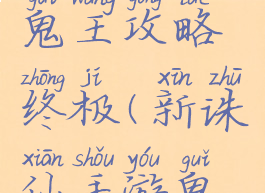 guǐ wáng gōng lüè
鬼王攻略
zhōng jí xīn zhū
终极(新诛
xiān shǒu yóu guǐ
仙手游鬼